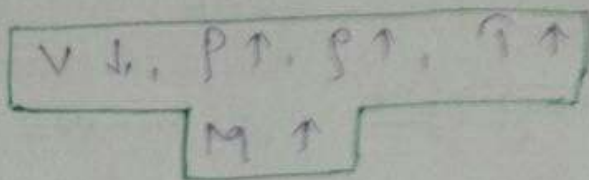 V ↓, P ↑, ρ ↑, T ↑
M ↑